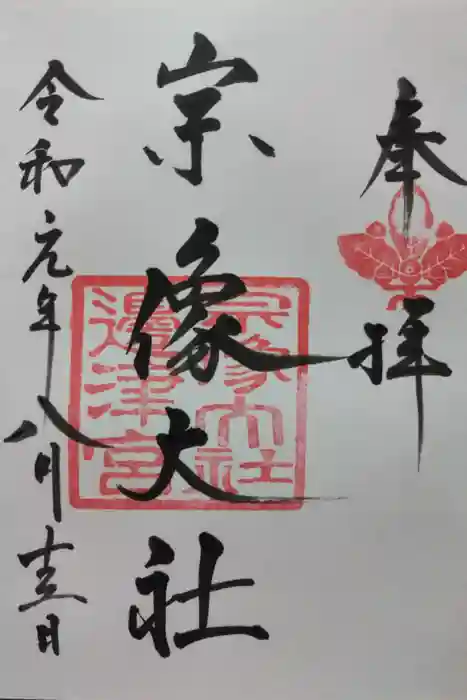 奉拝
宗像大社
宗像大社
邊津宮
令和元年八月十三日